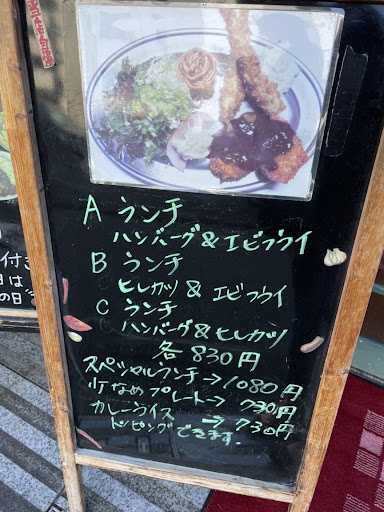 当店自慢
A ランチ
ハンバーグ & エビフライ
B ランチ
ヒレカツ & エビフライ
C ランチ
ハンバーグ & ヒレカツ
各 830円
スペシャルランチ→1080円
少なめプレート→730円
カレーライス → 730円
トッピングできます.
付き
日は
の日